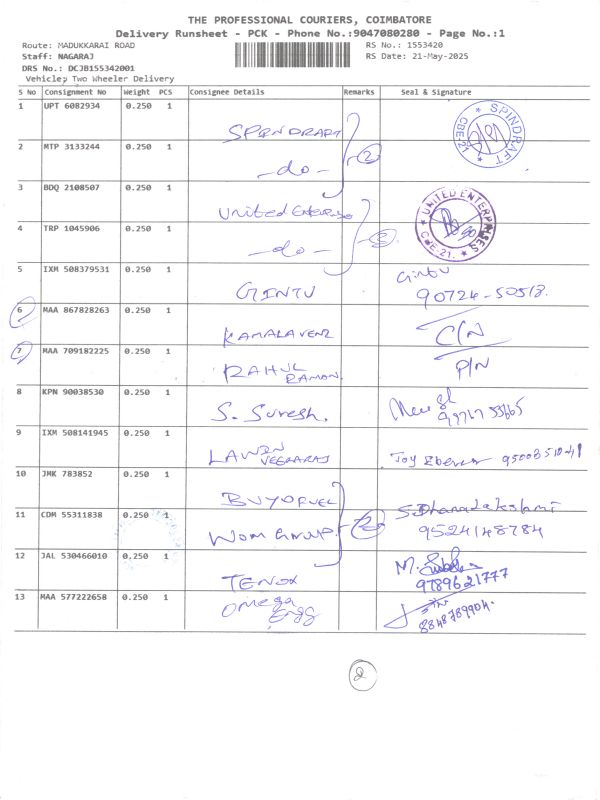 THE PROFESSIONAL COURIERS, COIMBATORE
Delivery Runsheet - PCK - Phone No.:9047080280 - Page No.:1
Route: MADUKKARAI ROAD
RS No.: 1553420
Staff: NAGARAJ
RS Date: 21-May-2025
DRS No.: DCJB155342001
Vehicle: Two Wheeler Delivery
S No Consignment No Weight PCS Consignee Details Remarks Seal & Signature
1 UPT 6082934 0.250 1
SPINDRAFT
SPINDRAFT CBE-21
2 MTP 3133244 0.250 1
-do-
2
3 BDQ 2108507 0.250 1
United Enterprise
UNITED ENTERPRISES CBE-21.
4 TRP 1045906 0.250 1
-do-
2
5 IXM 508379531 0.250 1
GINTU
Gintu
90724-50518.
6 MAA 867828263 0.250 1
KAMALAVENI
C/N
7 MAA 709182225 0.250 1
RAHUL
RAMAN.
P/N
8 KPN 90038530 0.250 1
S. Suresh.
9 IXM 508141945 0.250 1
VEERARAJ
Joy
10 JMK 783852 0.250 1
BUYOFUEL
S.Dhanalakshmi
11 CDM 55311838 0.250 1
Wom Group
2
9524148784
12 JAL 530466010 0.250 1
TENOX
M.
9789621777
13 MAA 577222658 0.250 1
Omega
Engg
8848789904.
2